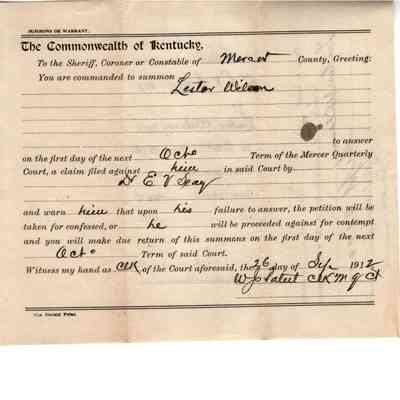 SUMMONS OR WARRANT.
The Commonwealth of Kentucky,
To the Sheriff, Coroner or Constable of Mercer County, Greeting:
You are commanded to summon
Lester Wilson
to answer
on the first day of the next Octo Term of the Mercer Quarterly
Court, a claim filed against him in said Court by
Dr E. V
and warn him that upon his failure to answer, the petition will be
taken for confessed, or he will be proceeded against for contempt
and you will make due return of this summons on the first day of the next
Octo Term of said Court.
Witness my hand as Clk of the Court aforesaid, the 26 day of Sep 1912
Clk M Q Ct
The Herald Print